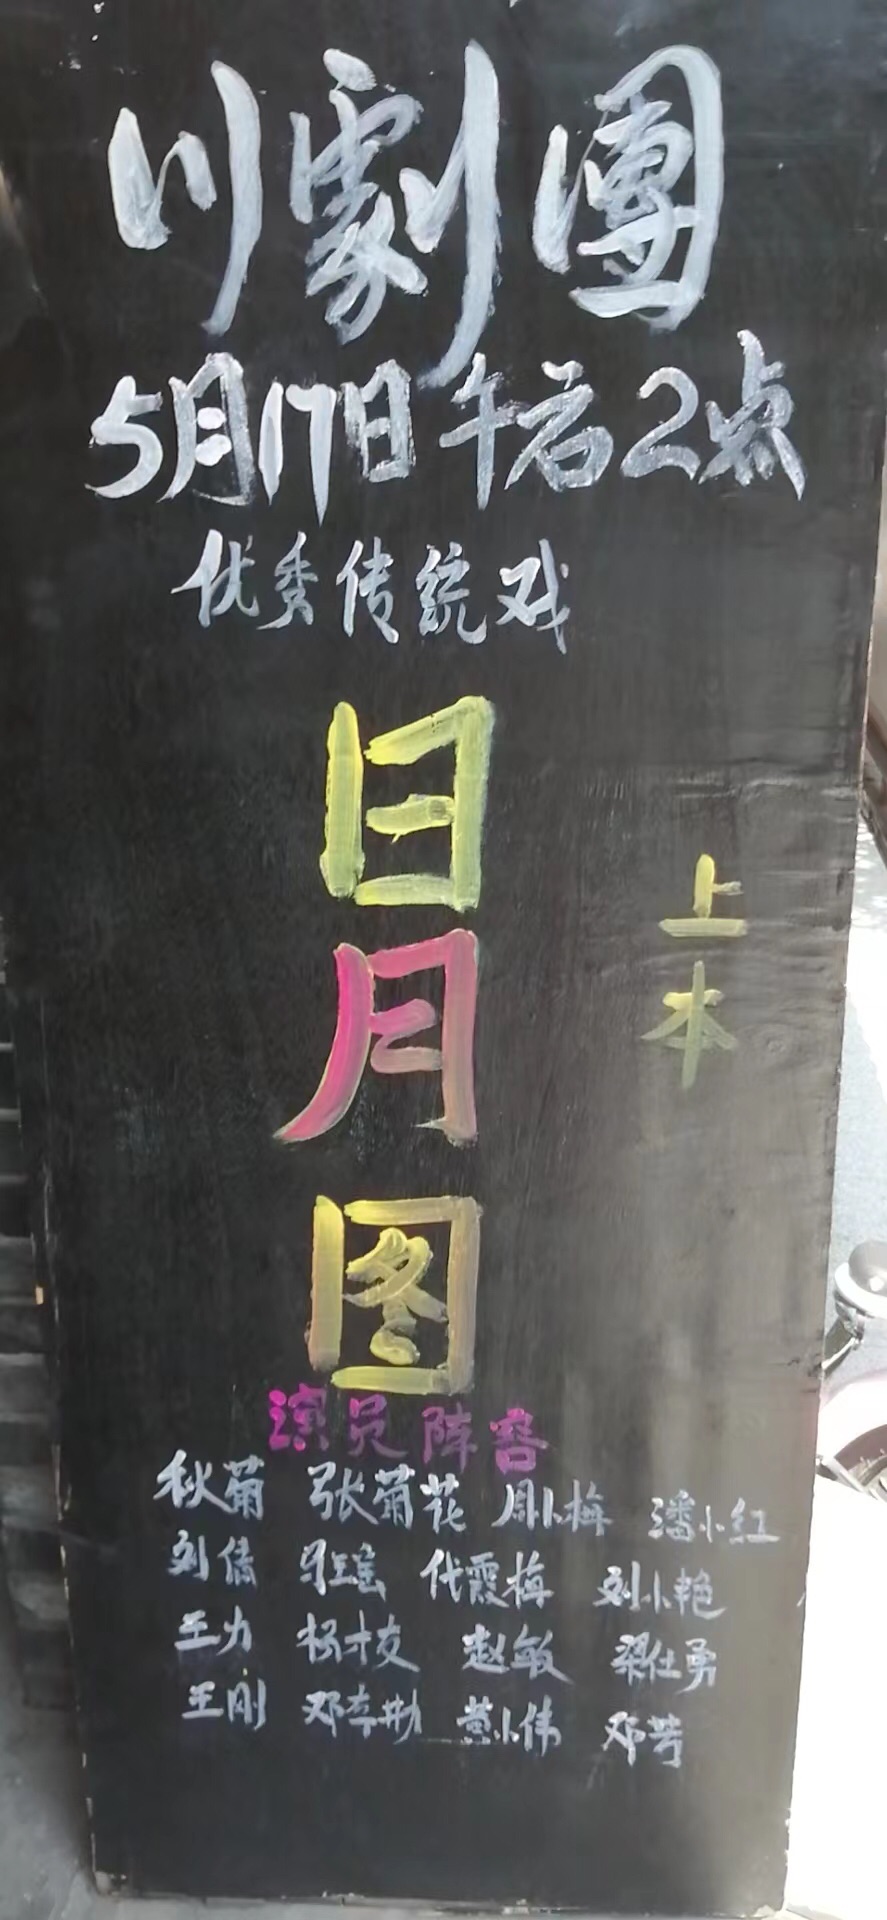 川劇團
5月17日午后2点
优秀传统戏
日月图
上本
演员阵容
秋菊 张菊花 周小梅 潘小红
刘倩 代霞梅 刘小艳
王力 杨才友 赵敏 梁仕勇
王刚 黄小伟 邓芳